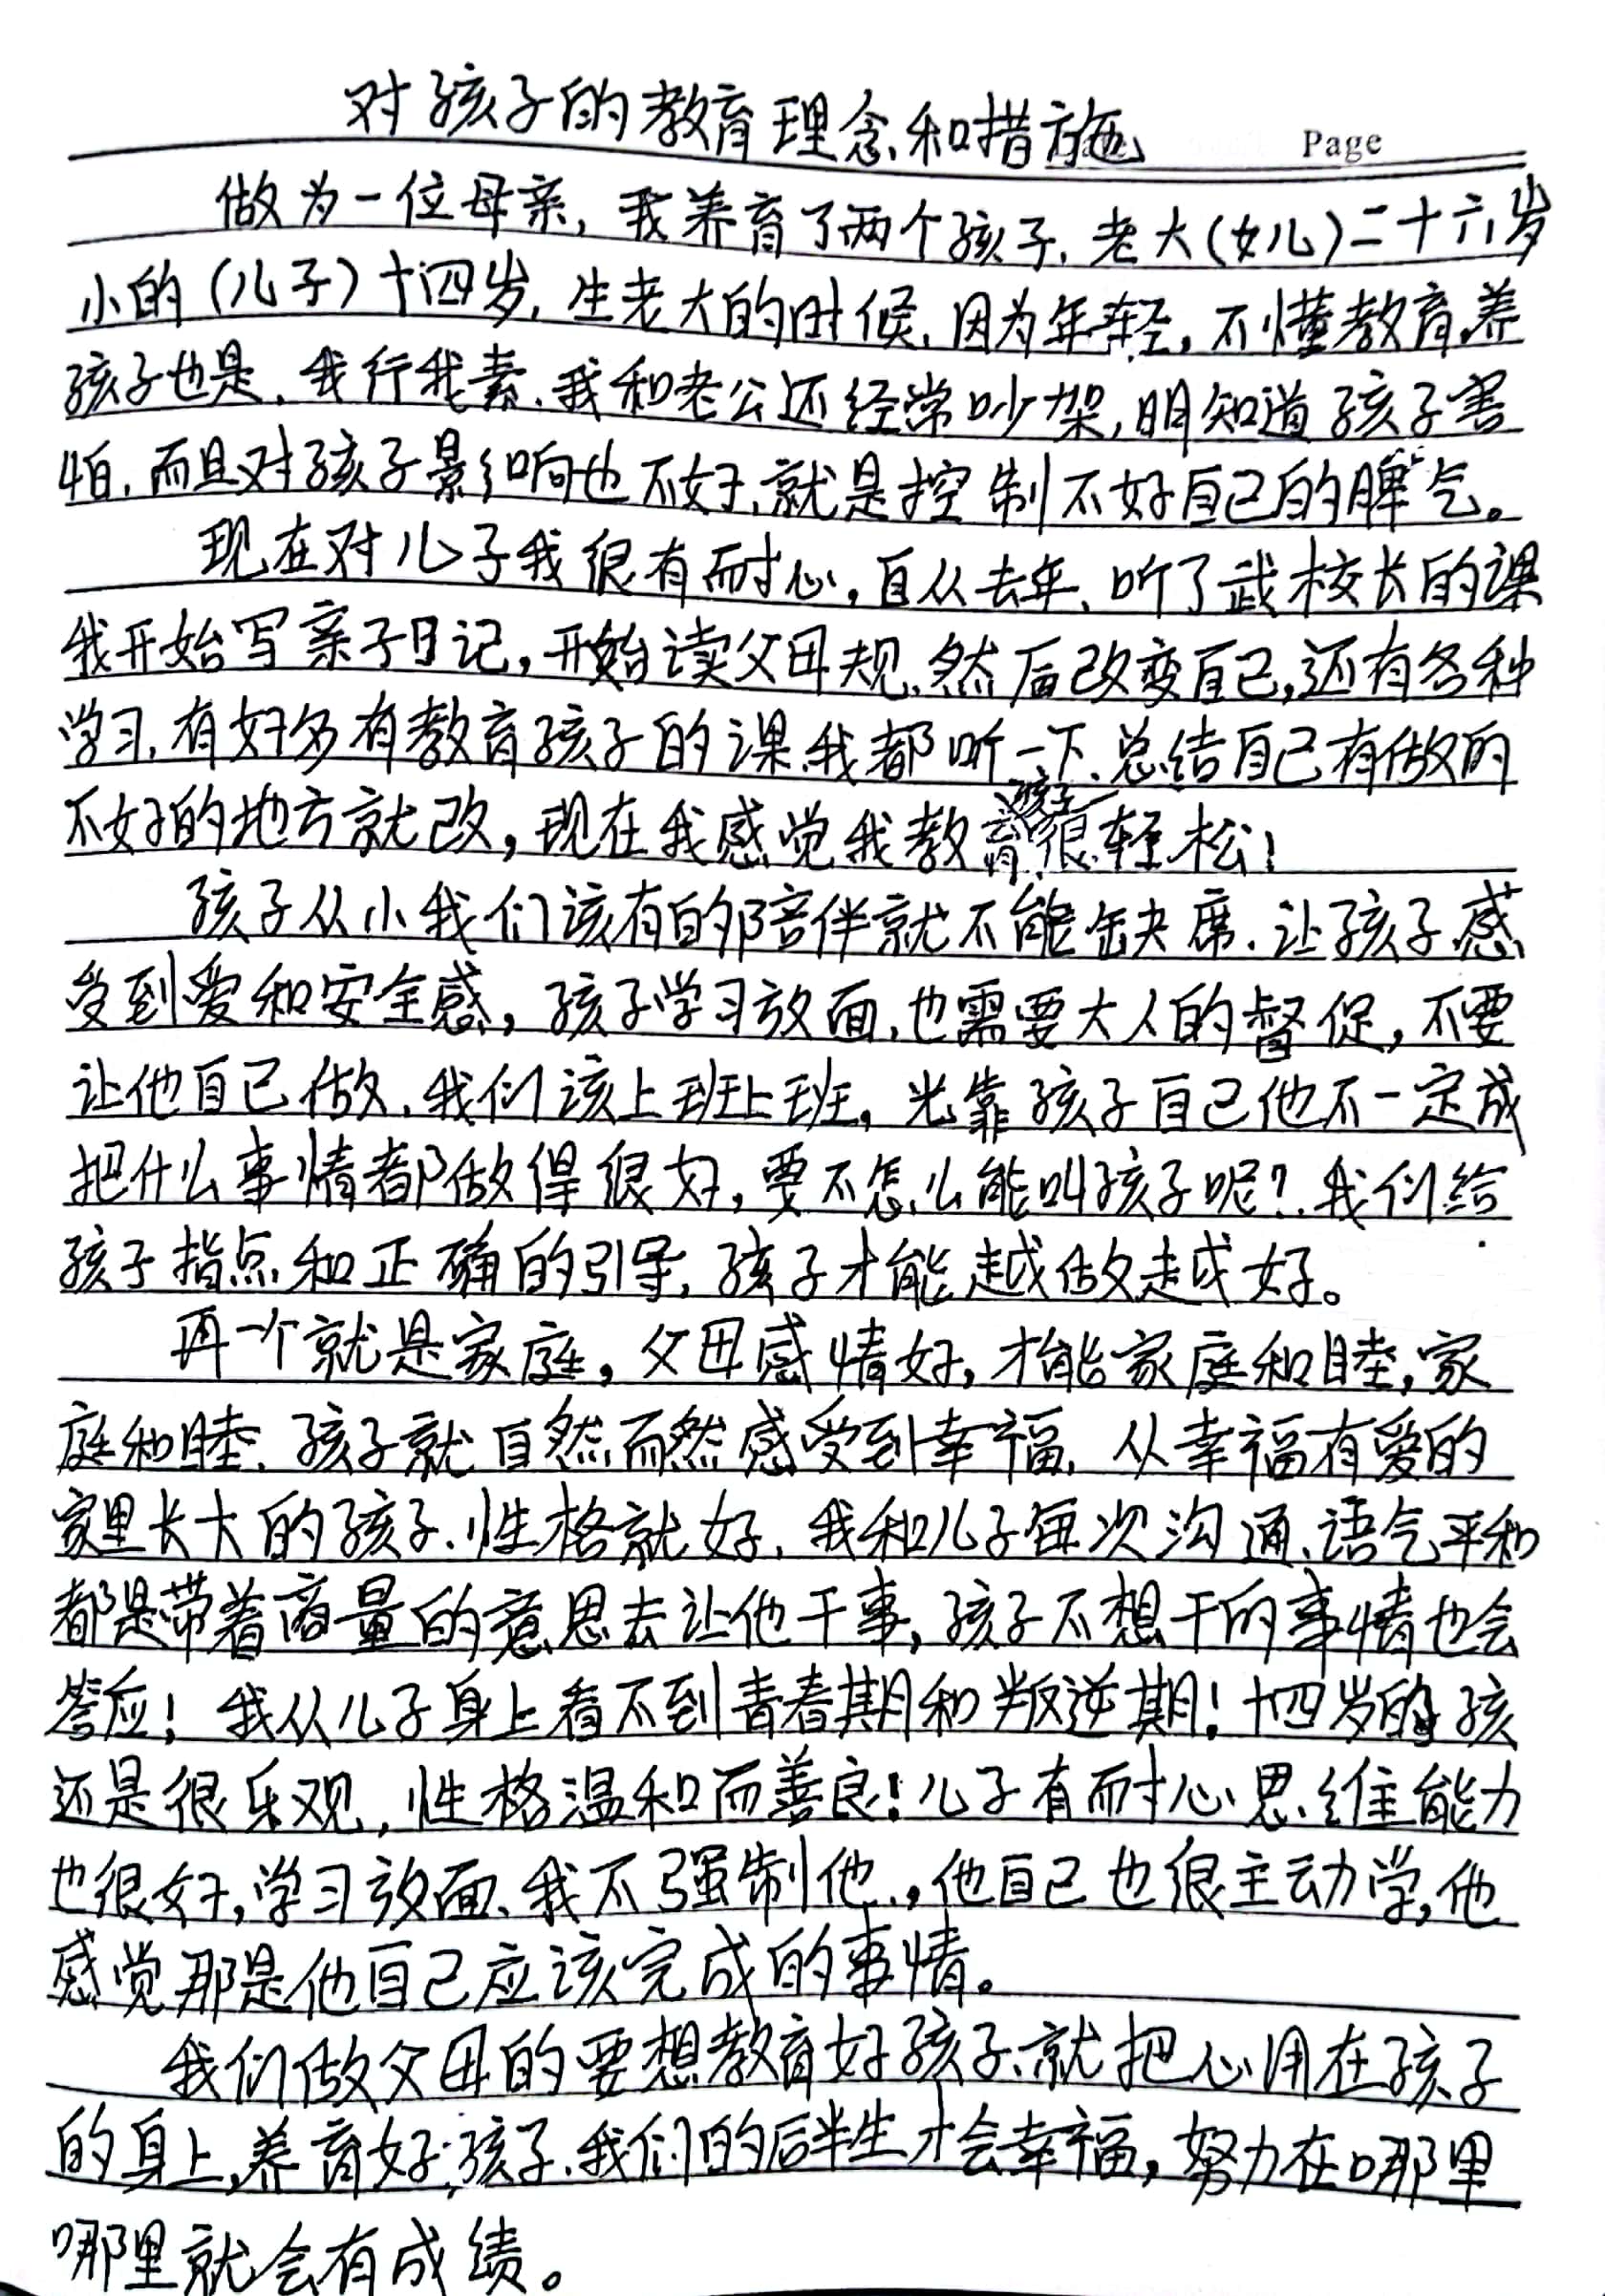 对孩子的教育理念和措施
Page
做为一位母亲，我养育了两个孩子，老大（女儿）二十六岁
小的（儿子）十四岁，生老大的时候，因为年轻，不懂教育，养
孩子也是，我行我素，我和老公还经常吵架，明知道孩子害
怕，而且对孩子影响也不好，就是控制不好自己的脾气。
现在对儿子我很有耐心，自从去年、听了武校长的课
我开始写亲子日记，开始读父母规，然后改变自己，还有各种
学习，有好多有教育孩子的课，我都听一下、总结自己有做的
不好的地方就改，现在我感觉我教育孩子很轻松！
孩子从小我们该有的陪伴就不能缺席，让孩子感
受到爱和安全感，孩子学习放面，也需要大人的督促，不要
让他自己做，我们该上班上班，光靠孩子自己他不一定成
把什么事情都做得很好，要不怎么能叫孩子呢？我们给
孩子指点和正确的引导，孩子才能越做越好。
再一个就是家庭，父母感情好，才能家庭和睦，家
庭和睦、孩子就自然而然感受到幸福，从幸福有爱的
家里长大的孩子、性格就好，我和儿子每次沟通、语气平和
都是带着商量的意思去让他干事，孩子不想干的事情也会
答应！我从儿子身上看不到青春期和叛逆期！十四岁的孩
还是很乐观，性格温和而善良！儿子有耐心思维能力
也很好，学习放面、我不强制他，他自己也很主动学，他
感觉那是他自己应该完成的事情。
我们做父母的要想教育好孩子、就把心用在孩子
的身上，养育好孩子、我们的后半生才会幸福，努力在哪里
哪里就会有成绩。